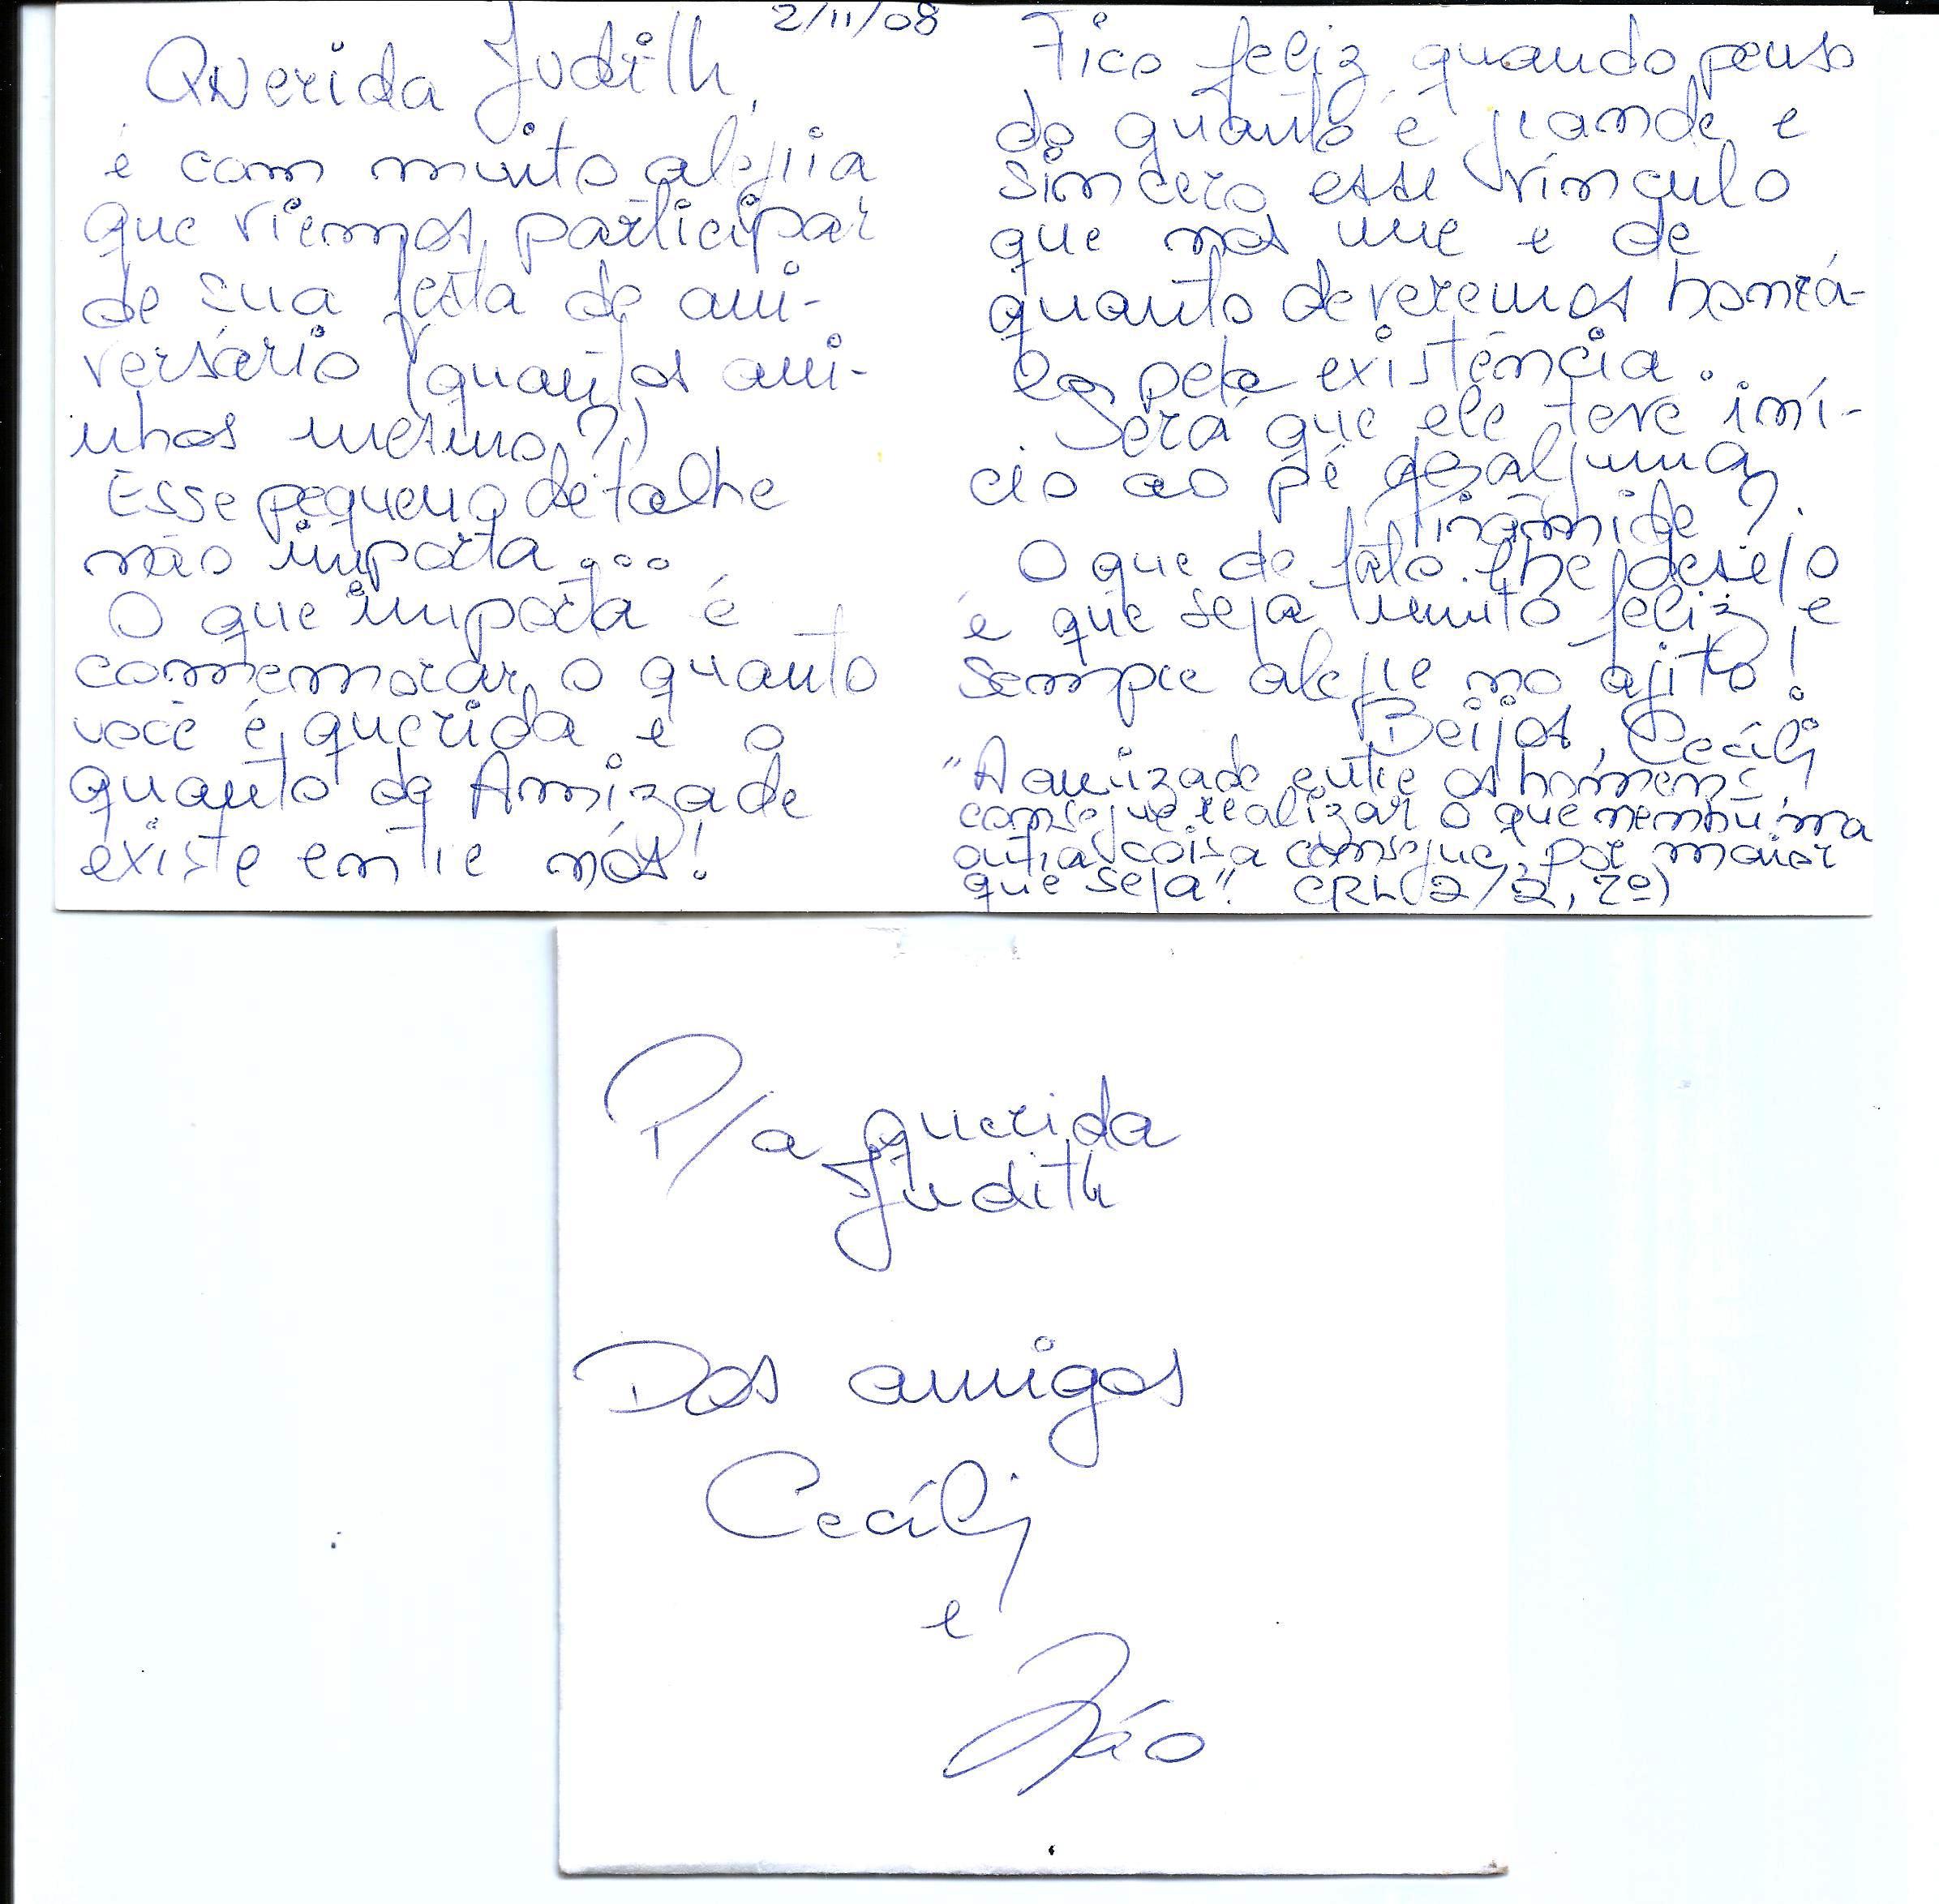 2/11/08
Querida Judith,
é com muito alegria
que viemos participar
de sua festa de ani-
versário (quantos ani-
nhos mesmo?)
Esse pequeno detalhe
não importa...
O que importa é
comemorar o quanto
você é querida e o
quanto de Amizade
existe entre nós!
Fico feliz quando penso
do quanto é grande e
sincero esse vínculo
que nos une e de
quanto deveremos honrá-
lo pela existência.
Será que ele teve iní-
cio ao pé de alguma
Pirâmide?
O que de fato lhe desejo
é que seja muito feliz e
sempre alegre no agito!
Beijos, Cecília
"A amizade entre os homens
consegue realizar o que nenhuma
outra coisa consegue, por maior
que seja". CRL (2/2, 7º)
P/a querida
Judith
Dos amigos
Cecília
e
João